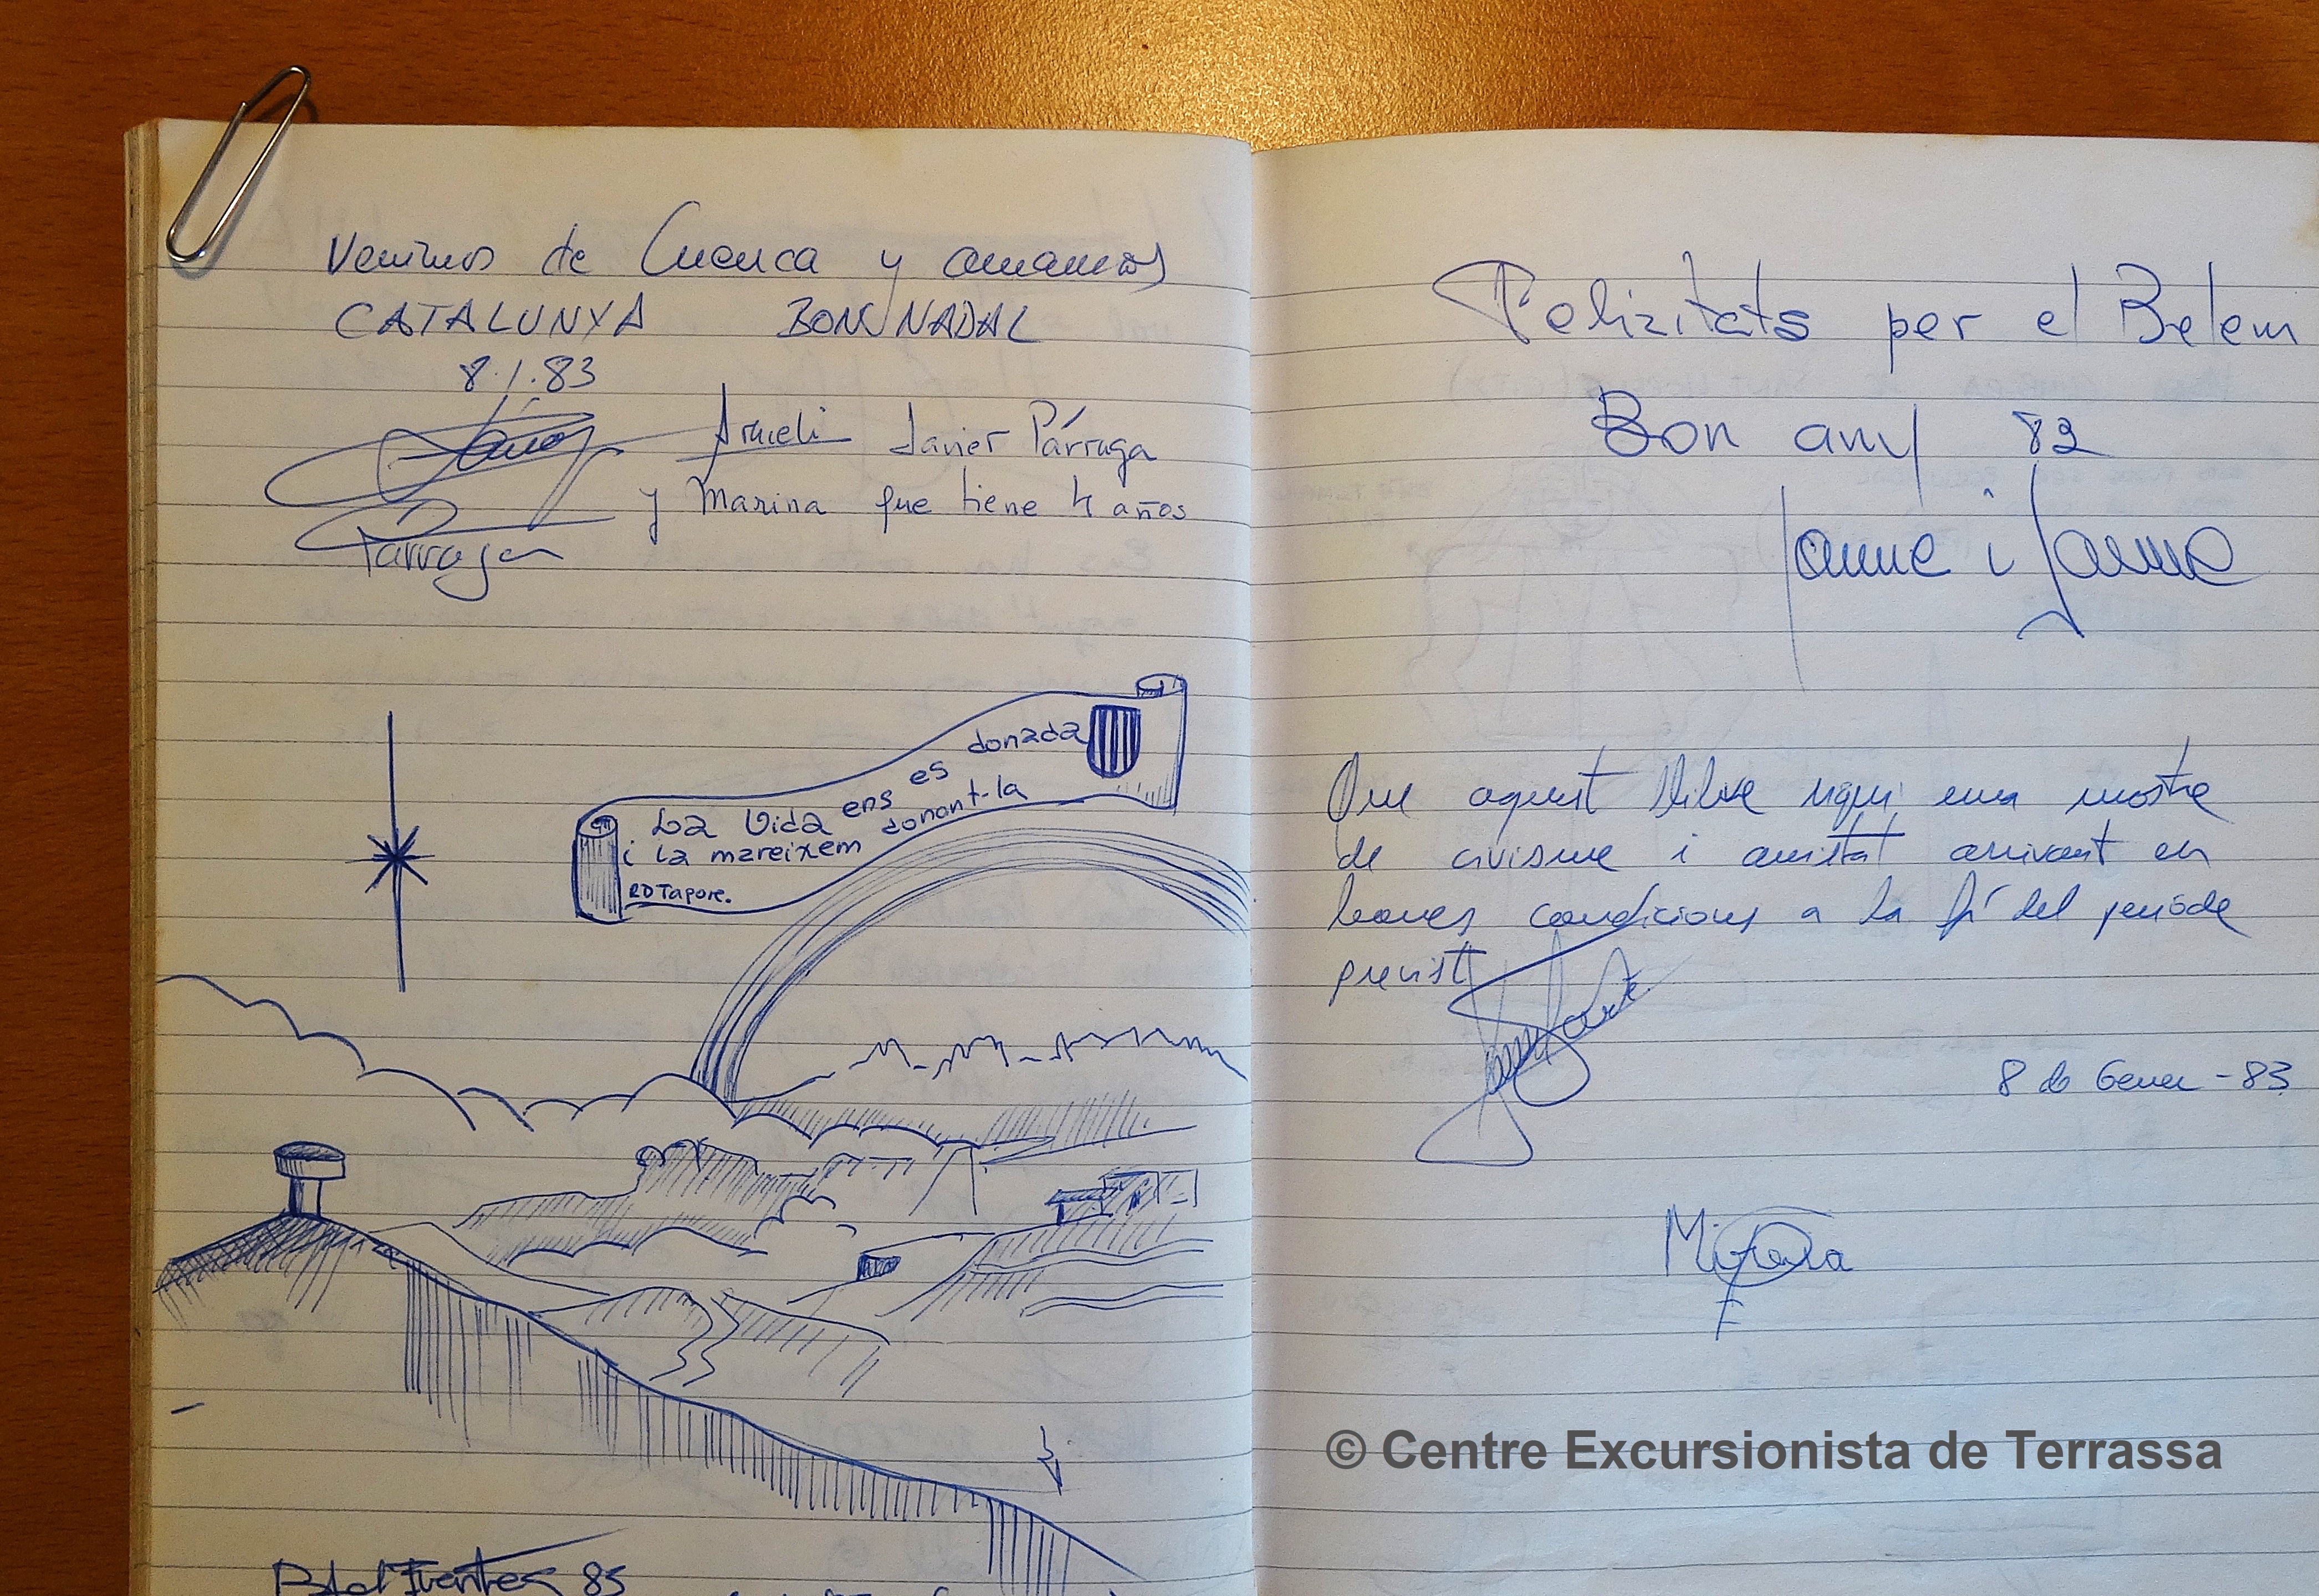 Venimos de Cuenca y amamos
CATALUNYA BON NADAL
8.1.83
Araceli Javier Párraga
y Marina que tiene 4 años
Parraga
La Vida ens es donada
i la mereixem donant-la
RD Tapore.
Fuentes 85
Felizitats per el Belem
Bon any 82
Jaume i Jaume
Que aquest llibre sigui una mostra
de civisme i amistat arrivant en
bones condicions a la fi del període
previst
8 de Gener - 83
© Centre Excursionista de Terrassa